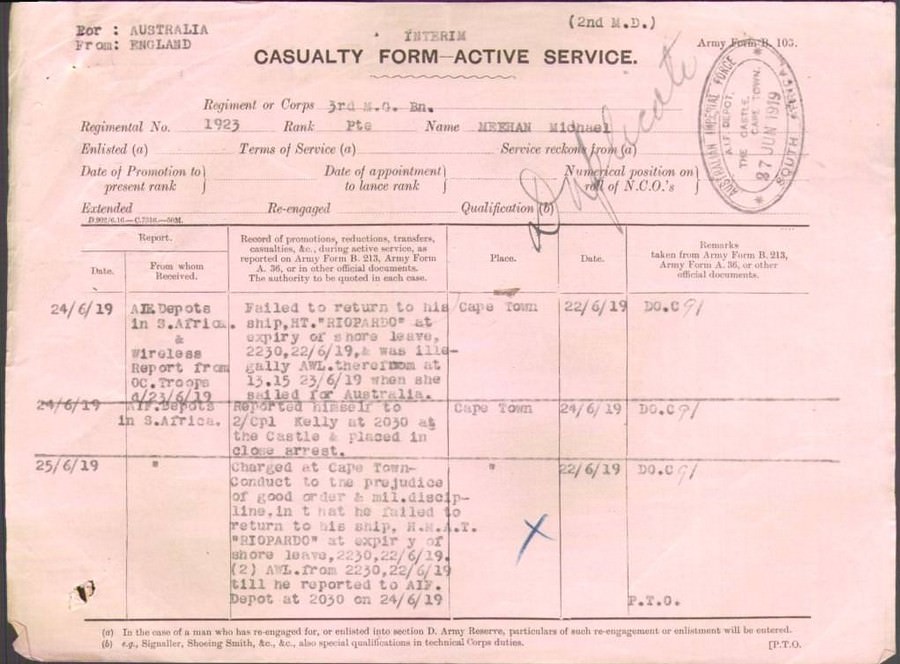 For : AUSTRALIA
From: ENGLAND
INTERIM
(2nd M.D.)
CASUALTY FORM—ACTIVE SERVICE.
Army Form B. 103.
Duplicate
AUSTRALIAN IMPERIAL FORCE
A.I.F. DEPOT.
THE CASTLE,
CAPE TOWN.
27 JUN 1919
SOUTH AFRICA
Regiment or Corps 3rd M.G. Bn.
Regimental No. 1923 Rank Pte Name MEEHAN Michael
Enlisted (a) Terms of Service (a) Service reckons from (a)
Date of Promotion to present rank } Date of appointment to lance rank } Numerical position on roll of N.C.O.'s }
Extended Re-engaged Qualification (b)
Report.
Date.
From whom Received.
Record of promotions, reductions, transfers,
casualties, &c., during active service, as
reported on Army Form B. 213, Army Form
A. 36, or in other official documents.
The authority to be quoted in each case.
Place.
Date.
Remarks
taken from Army Form B. 213,
Army Form A. 36, or other
official documents.
24/6/19 AIF.Depots Failed to return to his Cape Town 22/6/19 DO.C91
in S.Africa. ship,HT."RIOPARDO" at
& expiry of shore leave,
Wireless 2230,22/6/19,& was ille-
Report from gally AWL.therefrom at
OC.Troops 13.15 23/6/19 when she
d/23/6/19 sailed for Australia.
24/6/19 AIF.Depots Reported himself to Cape Town 24/6/19 DO.C91
in S.Africa. 2/Cpl Kelly at 2030 at
the Castle & placed in
close arrest.
25/6/19 " Charged at Cape Town- " 22/6/19 DO.C91
Conduct to the prejudice
of good order & mil.discip-
line,in t hat he failed to
return to his ship, H.M.A.T.
"RIOPARDO" at expir y of
shore leave,2230,22/6/19.
(2) AWL.from 2230,22/6/19
till he reported to AIF.
Depot at 2030 on 24/6/19 P.T.O.
(a) In the case of a man who has re-engaged for, or enlisted into section D. Army Reserve, particulars of such re-engagement or enlistment will be entered.
(b) e.g., Signaller, Shoeing Smith, &c., &c., also special qualifications in technical Corps duties. [P.T.O.